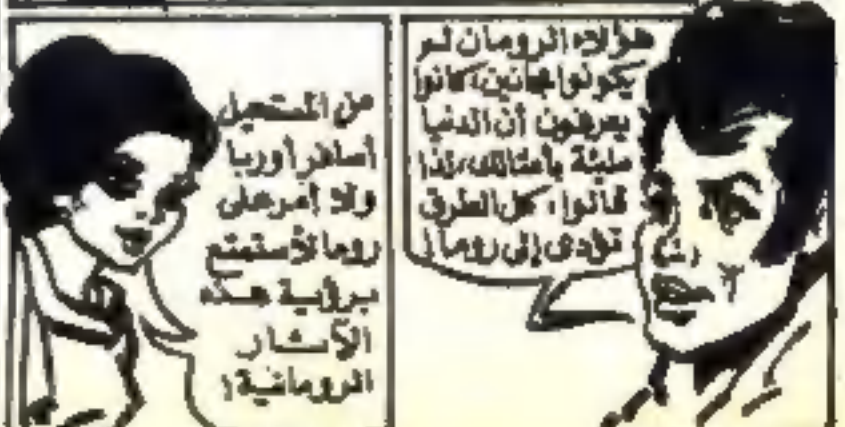 هؤلاء الرومان لم
يكونوا مجانين، كانوا
يعرفون أن الدنيا
مليئة بأمثالك، لذا
قالوا، كل الطرق
تؤدى إلى روما!
من المستحيل
أسافر أوربا
ولا أمر على
روما لأستمتع
برؤية هذه
الآثار
الرومانية!